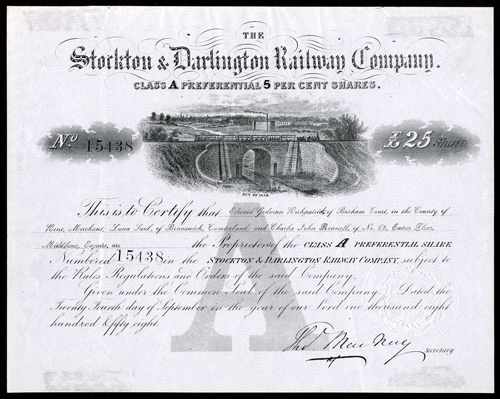 THE
Stockton & Darlington Railway Company.
CLASS A PREFERENTIAL 5 PER CENT SHARES.
No. 15438
£25 Share
ACT OF 1858.
This is to Certify that Edward Gidman Kirkpatrick of Barham Court, in the County of
Merchant, of Brunswick, Cumberland, and Charles John of No. 61, Eaton Place,
Middlesex, Esquire, are the Proprietors of the CLASS A PREFERENTIAL SHARE
Numbered 15438 in the STOCKTON & DARLINGTON RAILWAY COMPANY, subject to
the Rules Regulations and Orders of the said Company.
Given under the Common Seal of the said Company. Dated the
Twenty Fourth day of September in the year of our Lord one thousand eight
hundred & fifty eight.
A
Thos. Mac Nay
Secretary